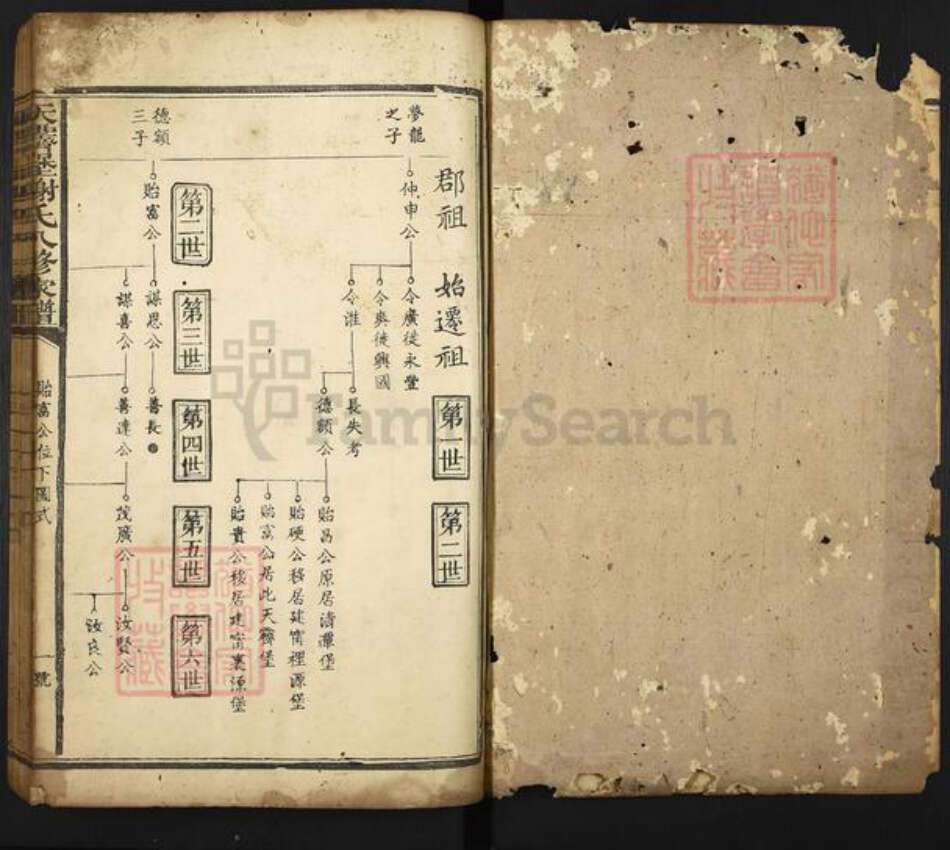 夢龍之子
仲申公
令廣徙永豐
令奥徙興國
令淮
長失考
德穎公
貽昌公原居濤潭堡
貽硬公移居建甯裡源堡
貽富公居此天䨇堡
貽貴公移居建甯裏源堡
郡祖
始遷祖
第一世
第二世
德穎三子
貽富公
謀思公
謀喜公
善長
善達公
茂廣公
汝賢公
汝良公
第二世
第三世
第四世
第五世
第六世
謝氏八修家譜
貽富公位下圖式
號
FamilySearch